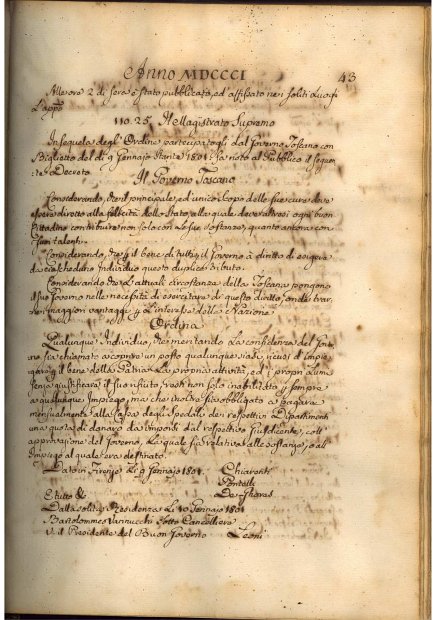 Anno MDCCCI 43
Alle ore 2 di sera è stato pubblicato, ed affissato nei soliti Luoghi
L'app.
110. 25. Il Magistrato Supremo
In sequela degl'Ordini partecipatogli dal Governo Toscano con
Biglietto del dì 9 Gennajo Stante 1801 fa noto al Pubblico il seguen-
te Decreto
Il Governo Toscano
Considerando, che il principale, ed unico scopo delle sue cure deve
essere diretto alla felicità dello Stato, alla quale deve altresì ogni buon
Cittadino contribuire non solo con le sue sostanze, quanto ancora con
i suoi talenti.
Considerando, che il bene di tutti, il Governo à diritto di esigere
da ciaschedun Individuo questo duplice tributo.
Considerando che le attuali circostanze della Toscana pongono
il suo Governo nelle necessità di esercitare di questo diritto, onde trar-
ne i maggiori vantaggi per l'interesse della Nazione
Ordina
Qualunque Individuo, che meritando la confidenza del Gover-
no sia chiamato a coprire un posto qualunque siasi, ricusi d'impie-
gare per il bene della Patria la propria attività, ed i propri Lumi
senza giustificare il suo rifiuto, resti non solo inabilitato per sempre
a qualunque Impiego, ma che inoltre sia obbligato a pagare
mensualmente alla Cassa degli Spedali dei respettivi Dipartimenti
una quota di denaro da imporsi dal respettivo Giusdicente, coll'
approvazione del Governo, la quale sia relativa alle sostanze, e all'
Impiego al quale era destinato.
Dato in Firenze li 9 Gennajo 1801. Chiarenti
Pontelli
E tutto &c. De Ghores
Dalla solita Residenza li 10 Gennajo 1801
Bartolommeo Vannucchi Sotto Cancelliere
V. il Presidente del Buon Governo Leoni